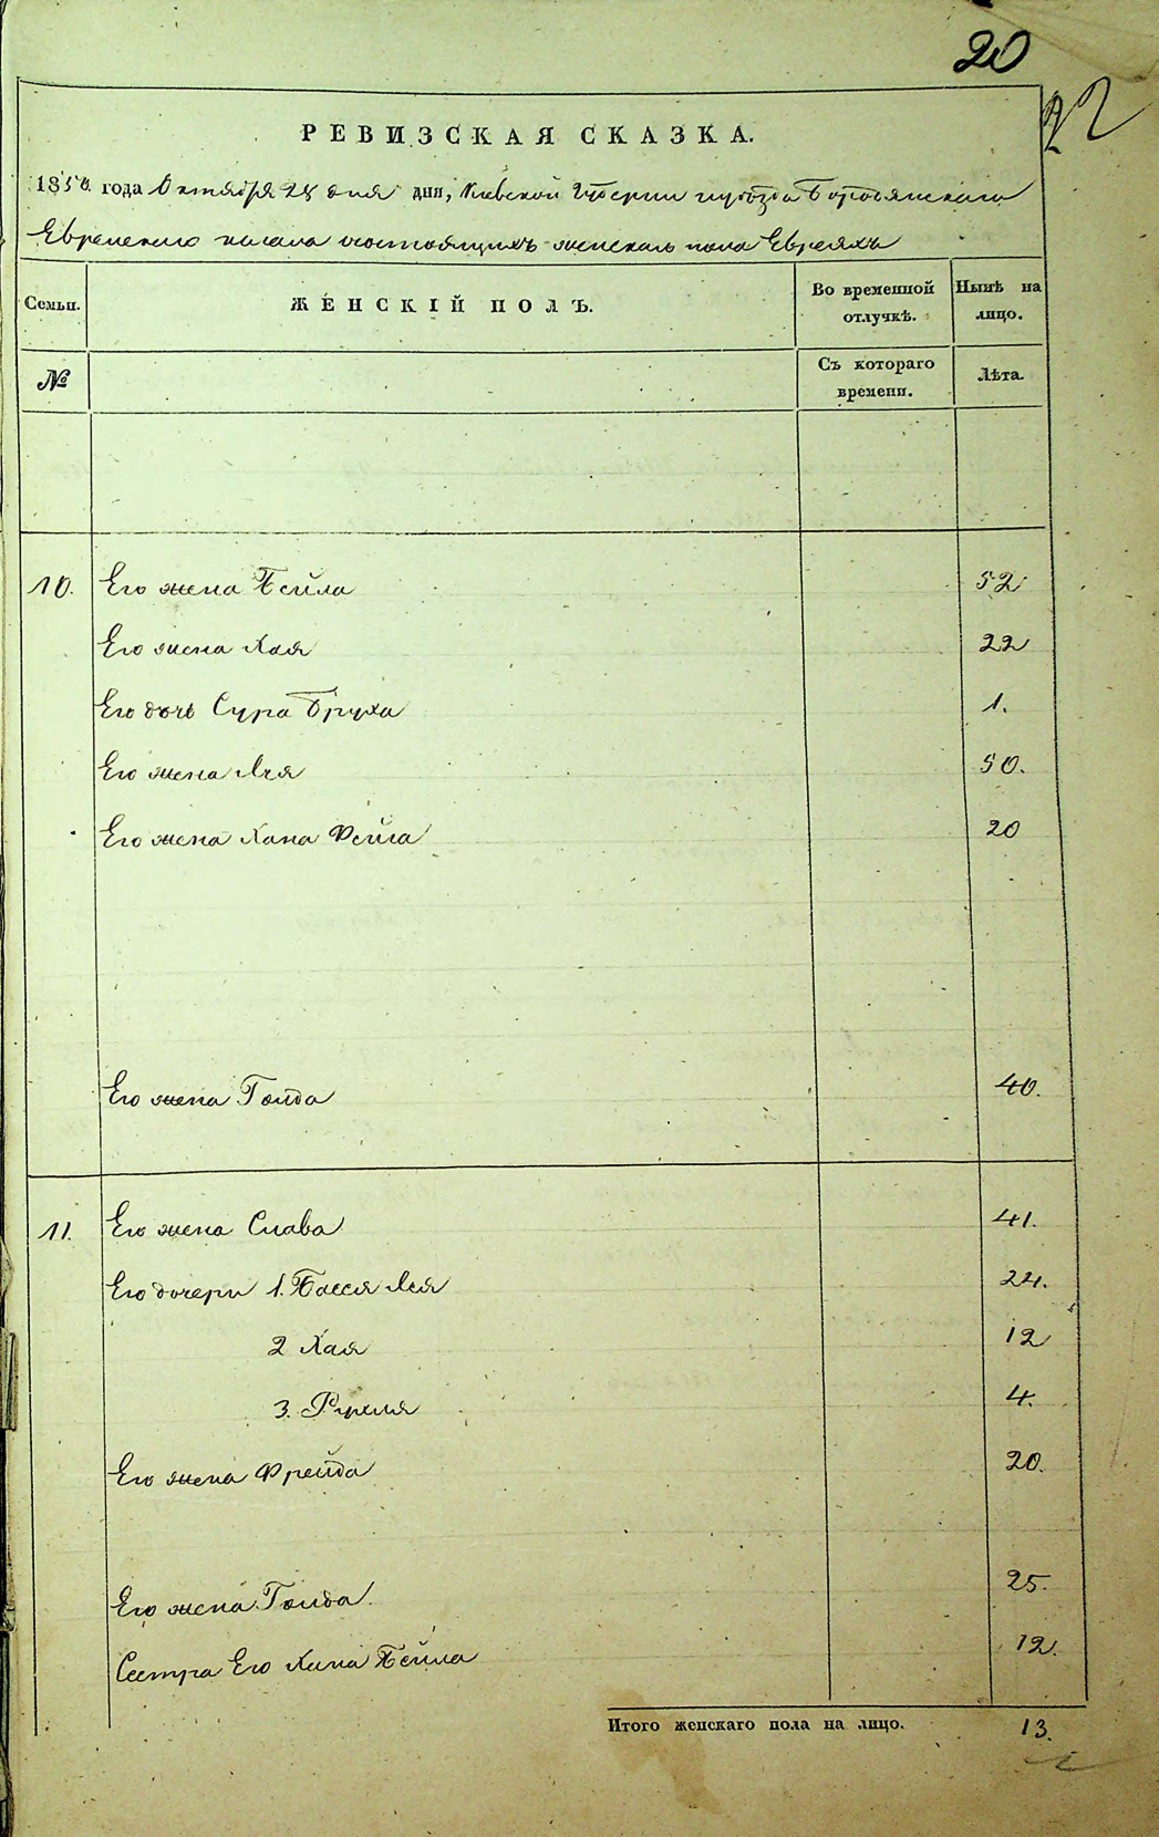 20
22
РЕВИЗСКАЯ СКАЗКА.
1850 года Октября 25 дня дня, Киевской Губернии и уезда Бородянскаго
Еврейскаго кагала состоящихъ женскаго пола Евреяхъ
Семьи. ЖЕНСКІЙ ПОЛЪ. Во временной отлучкѣ. Нынѣ на лицо.
№ Съ котораго времени. Лѣта.
10. Его жена Бейла 52
Его жена Хая 22
Его дочь Сура Бруха 1.
Его жена Лея 50.
Его жена Хана Фейга 20
Его жена Голда 40.
11. Его жена Слава 41.
Его дочери 1. Бася Лея 24.
2 Хая 12
3. Рухля 4.
Его жена Фрейда 20.
Его жена Голда 25.
Сестра Его Хана Бейла 12.
Итого женскаго пола на лицо. 13.